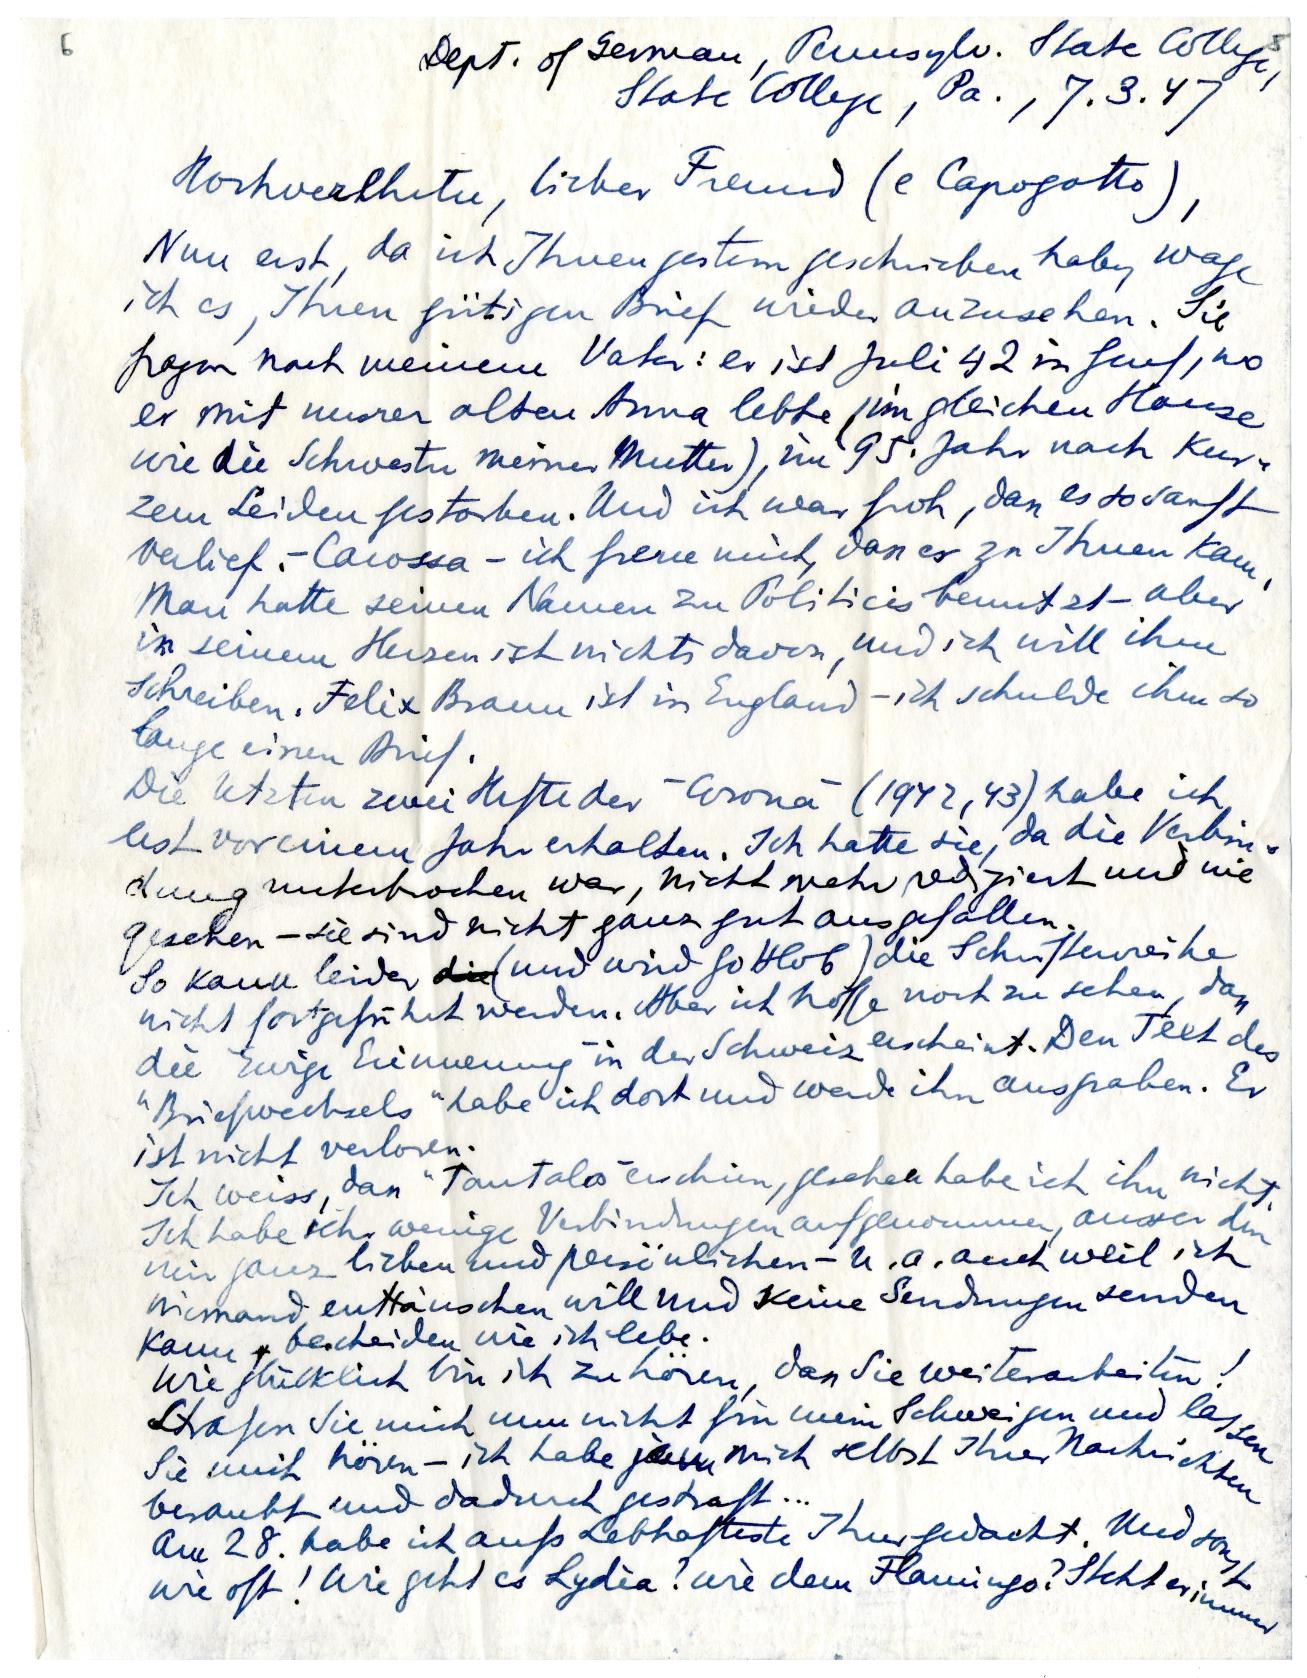 6
5
Dept. of German, Pennsylv. State College,
State College, Pa., 7.3.47
Hochverehrter, lieber Freund (e Capogatto),
Nun erst, da ich Ihnen gestern geschrieben habe, wage
ich es, Ihren gütigen Brief wieder anzusehen. Sie
fragen nach meinem Vater: er ist Juli 42 in Genf, wo
er mit unsrer alten Anna lebte (im gleichen Hause
wie die Schwester meiner Mutter), im 95. Jahr nach kur-
zem Leiden gestorben. Und ich war froh, dass es so sanft
verlief. – Carossa – ich freue mich, dass er zu Ihnen kam.
Man hatte seinen Namen zu Politicis benützt – aber
in seinem Herzen ist nichts davon, und ich will ihm
schreiben. Felix Braun ist in England – ich schulde ihm so
lange einen Brief.
Die letzten zwei Hefte der "Corona" (1942, 43) habe ich
erst vor einem Jahr erhalten. Ich hatte sie, da die Verbin-
dung unterbrochen war, nicht mehr redigiert und nie
gesehen – sie sind nicht ganz gut ausgefallen.
So kann leider die (und wird gottlob) die Schriftenreihe
nicht fortgeführt werden. Aber ich hoffe noch zu sehen, dass
die "Ewige Erinnerung" in der Schweiz erscheint. Den Text des
"Briefwechsels" habe ich dort und werde ihn ausgraben. Er
ist nicht verloren.
Ich weiss, dass "Tantalos" erschien, gesehen habe ich ihn nicht.
Ich habe sehr wenige Verbindungen aufgenommen, ausser den
mir ganz lieben und persönlichen – u. a. auch weil ich
niemand enttäuschen will und keine Sendungen senden
kann, bescheiden wie ich lebe.
Wie glücklich bin ich zu hören, dass Sie weiterarbeiten!
Strafen Sie mich nun nicht für mein Schweigen und lassen
Sie mich hören – ich habe mich selbst Ihrer Nachrichten
beraubt und dadurch gestraft...
Am 28. habe ich aufs Lebhafteste Ihrer gedacht. Und sonst
wie oft! Wie geht es Lydia? wie dem Flamingo? Steht er immer